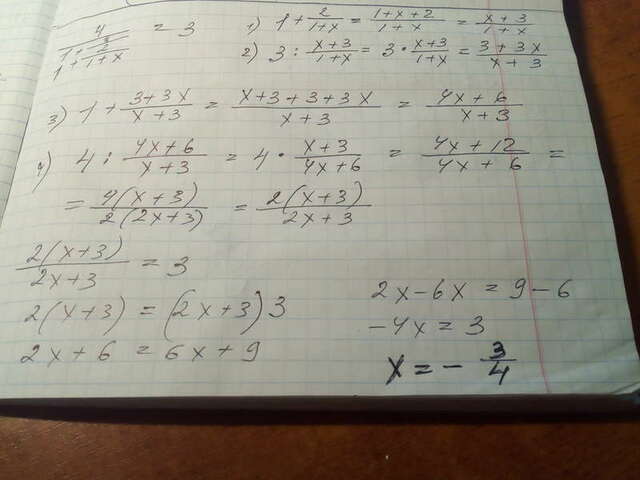 4/(1+3/(1+2/(1+x))) = 3
1) 1 + 2/(1+x) = (1+x+2)/(1+x) = (x+3)/(1+x)
2) 3 : (x+3)/(1+x) = 3 · (x+3)/(1+x) = (3+3x)/(x+3)
3) 1 + (3+3x)/(x+3) = (x+3+3+3x)/(x+3) = (4x+6)/(x+3)
4) 4 : (4x+6)/(x+3) = 4 · (x+3)/(4x+6) = (4x+12)/(4x+6) =
= 4(x+3)/(2(2x+3)) = 2(x+3)/(2x+3)
2(x+3)/(2x+3) = 3
2(x+3) = (2x+3)3
2x+6 = 6x+9
2x-6x = 9-6
-4x = 3
x = - 3/4